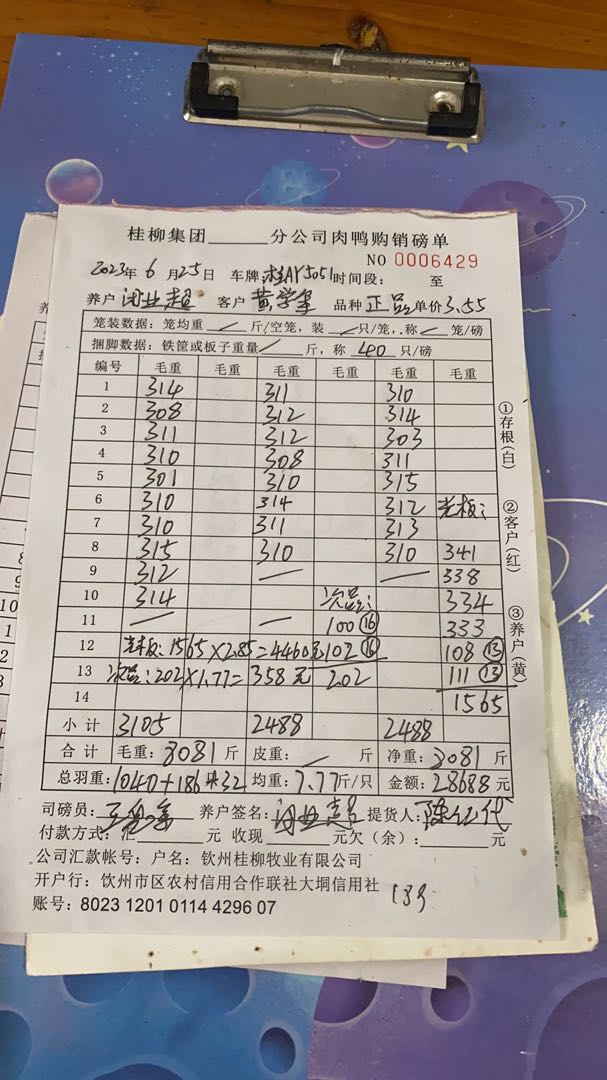 桂柳集团______分公司肉鸭购销磅单
NO 0006429
2023年 6 月 25日 车牌 桂AY5051 时间段: 至
养户 闭业超 客户 品种 正品 单价 3.55
笼装数据: 笼均重 / 斤/空笼, 装 / 只/笼, 称 / 笼/磅
捆脚数据: 铁筐或板子重量 / 斤, 称 40 只/磅
编号 毛重 毛重 毛重 毛重 毛重 毛重
1 314 311 310
2 308 312 314
3 311 312 303
4 310 308 311
5 301 310 315
6 310 314 312 光板:
7 310 311 313
8 315 310 310 341
9 312 — — 338
10 314 次品: 334
11 — — 100 ⑯ 333
12 光板: 1565×2.85=4460元 102 ⑯ 108 ⑬
13 次品: 202×1.77=358元 202 111 ⑬
14 1565
小计 3105 2488 2488
合计 毛重: 8081 斤 皮重: / 斤 净重: 8081 斤
总羽重: 1040+186+32 均重: 7.77 斤/只 金额: 28688 元
司磅员: 养户签名: 闭业超 提货人:
付款方式: 汇______元 收现______元欠(余): ______元
公司汇款帐号: 户名: 钦州桂柳牧业有限公司
开户行: 钦州市区农村信用合作联社大垌信用社
账号: 8023 1201 0114 4296 07
①存根(白)
②客户(红)
③养户(黄)